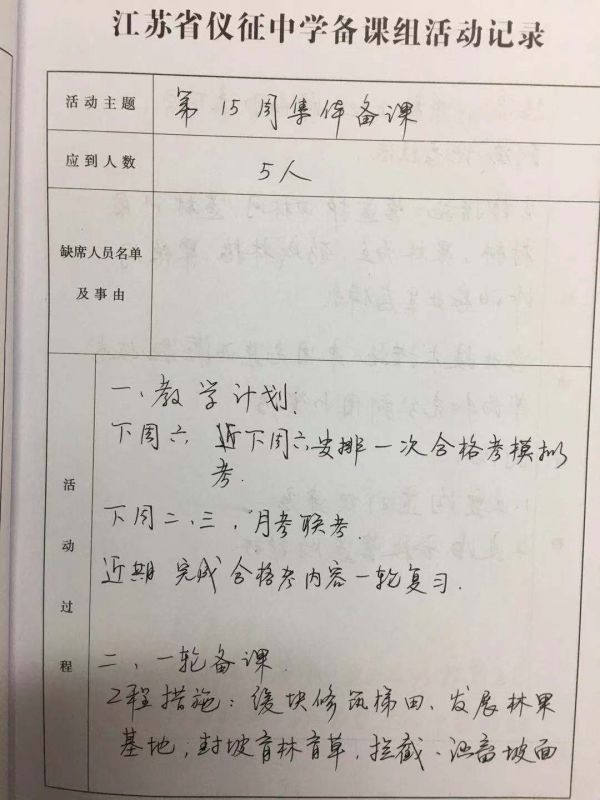 江苏省仪征中学备课组活动记录
活动主题 第15周集体备课
应到人数 5人
缺席人员名单
及事由
活动过程
一、教学计划:
下周六 近下周六安排一次合格考模拟
考.
下周二、三,月考联考.
近期 完成合格考内容一轮复习.
二、一轮备课.
工程措施:缓坡修筑梯田、发展林果
基地,封坡育林育草,拦截、 蓄坡面